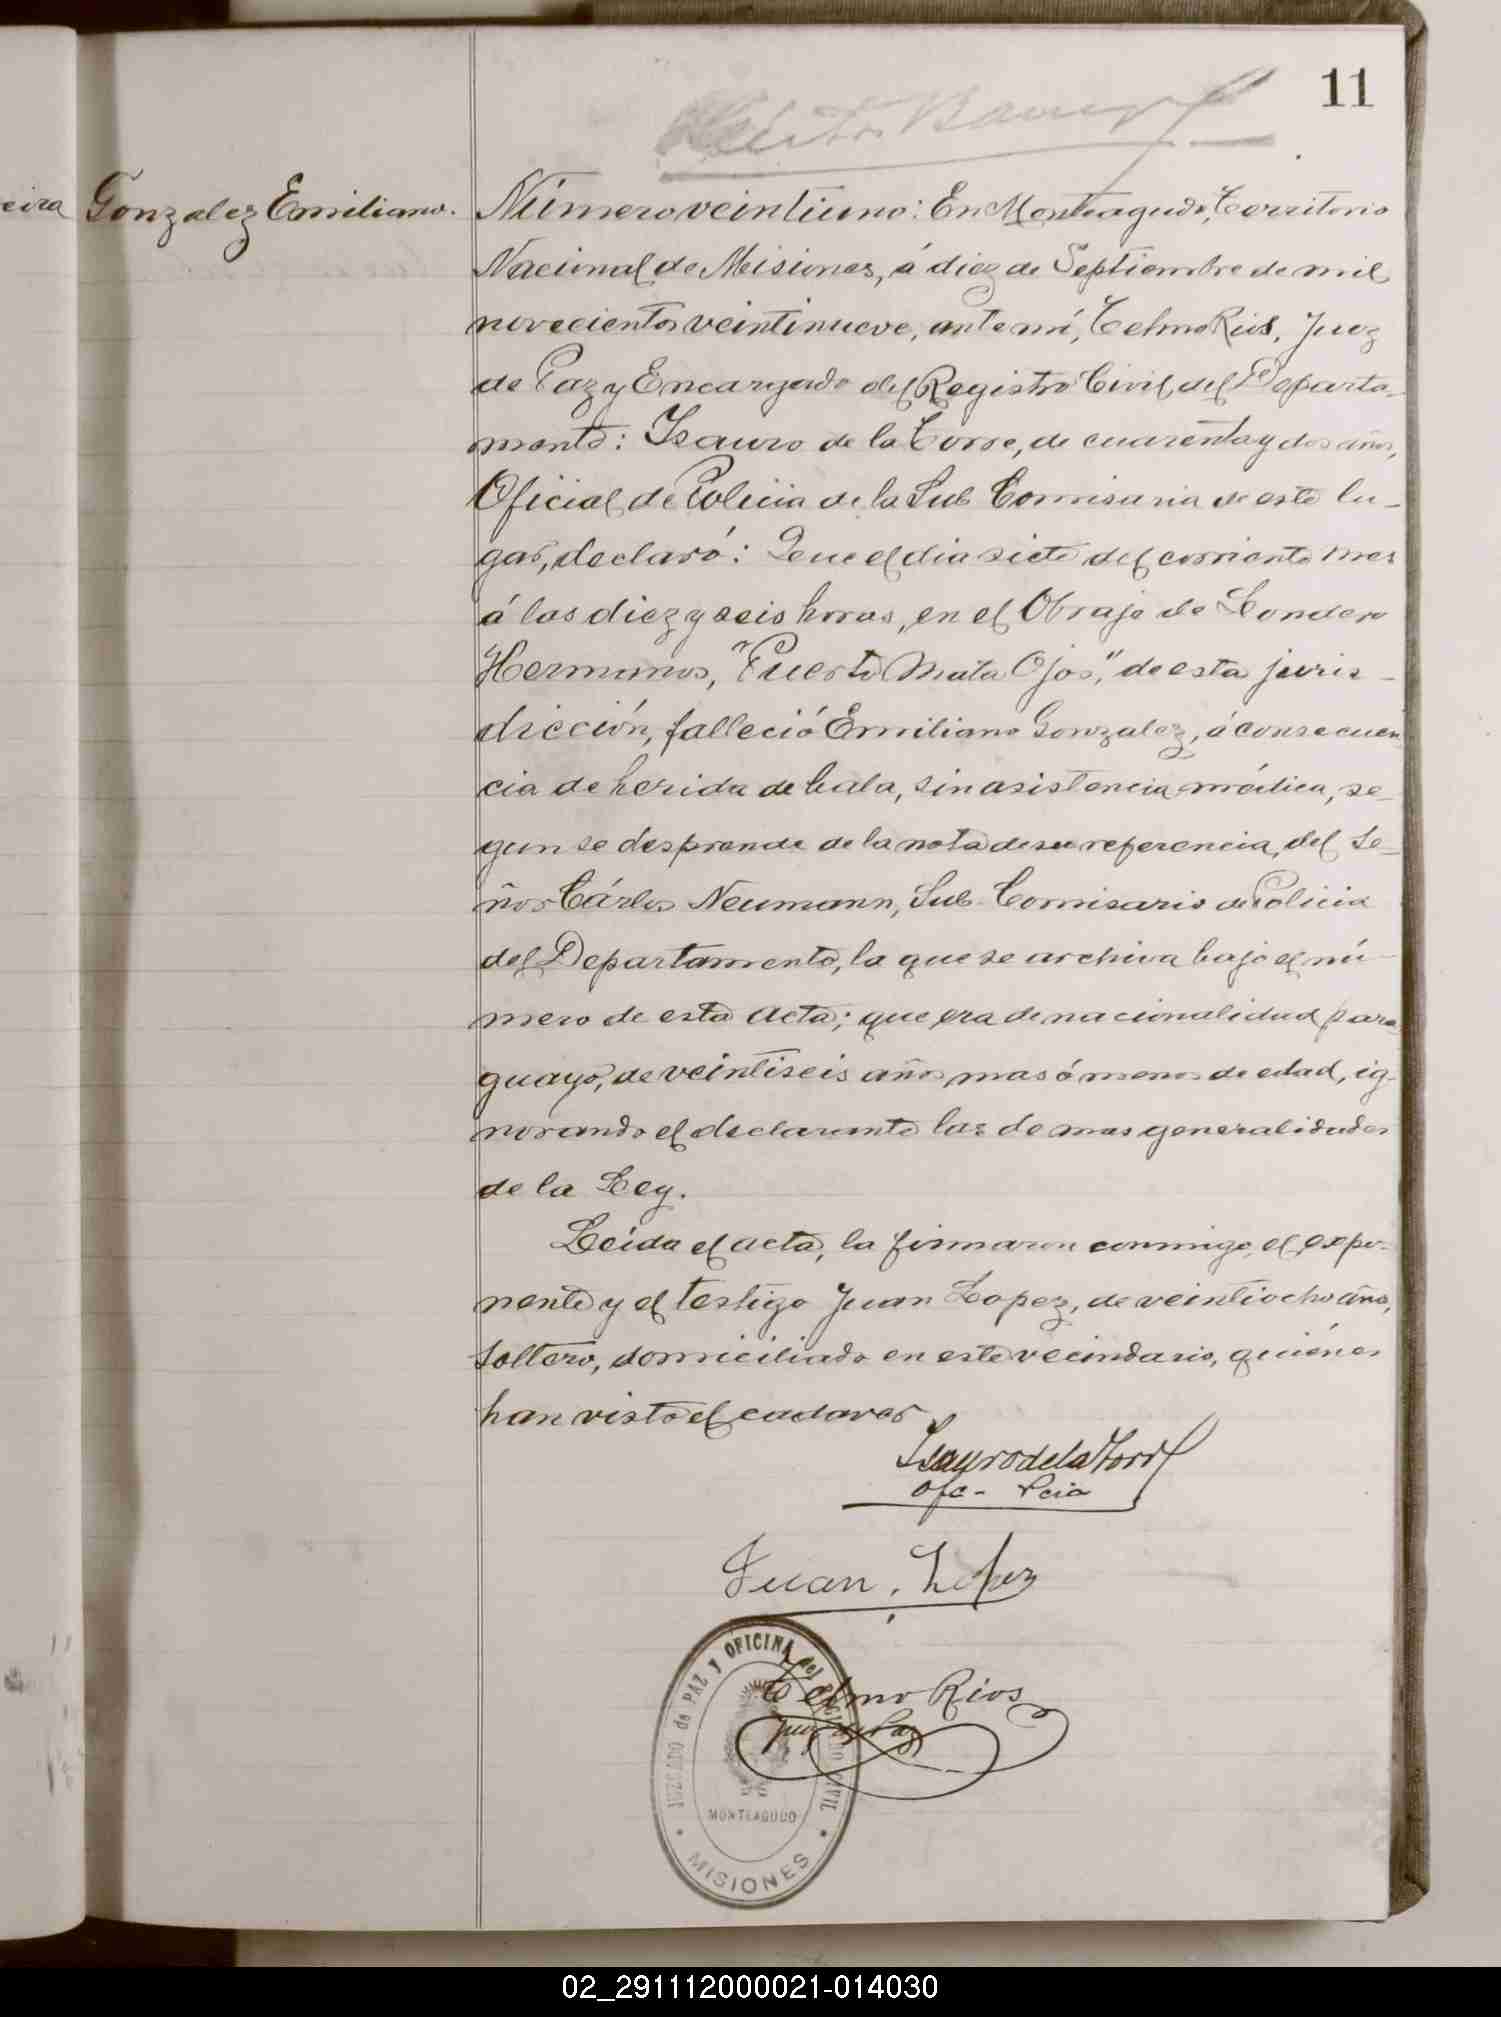 11
eira
Gonzalez Emiliano.
Número veintiuno: En Monteagudo, Territorio
Nacional de Misiones, á diez de Septiembre de mil
novecientos veintinueve, ante mí, Telmo Rios, Juez
de Paz y Encargado del Registro Civil del Departa-
mento: Isauro de la Torre, de cuarenta y dos años,
Oficial de Policia de la Sub Comisaria de este lu-
gar, declaró: Que el dia siete del corriente mes
á las diez y seis horas, en el Obraje de Londero
Hermanos, "Puerto Mata Ojos," de esta juris-
dicción, falleció Emiliano Gonzalez, á consecuen
cia de herida de bala, sin asistencia médica, se-
gun se desprende de la nota de su referencia, del Se-
ñor Cárlos Neumann, Sub-Comisario de Policia
del Departamento, la que se archiva bajo el nú-
mero de esta acta; que era de nacionalidad para
guayo, de veintiseis años mas ó menos de edad, ig-
norando el declarante las demas generalidades
de la Ley.
Leida el acta, la firmaron conmigo, el expo-
nente y el testigo Juan Lopez, de veintiocho años,
soltero, domiciliado en este vecindario, quiénes
han visto el cadaver
Isauro de la Torre
Ofc- Pcia
Juan. Lopez
Telmo Rios
Juez de Paz
JUZGADO de PAZ y OFICINA del REGISTRO CIVIL
MONTEAGUDO
MISIONES
02_291112000021-014030